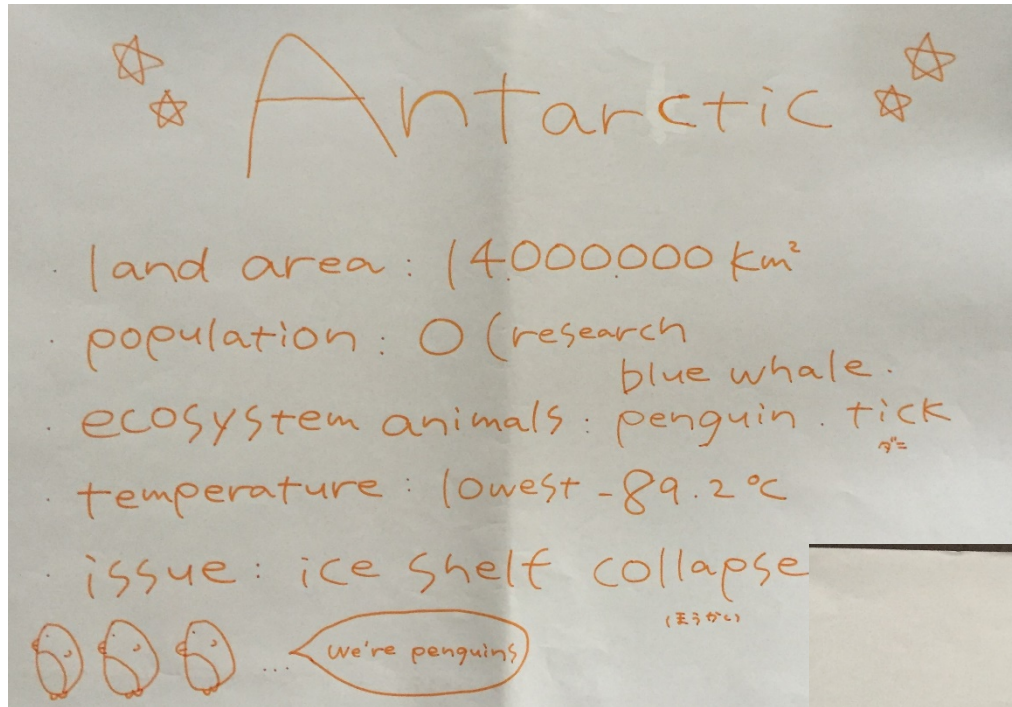 Antarctic
· land area : 14.000.000 km²
· population : 0 (research
blue whale.
· ecosystem animals : penguin . tick
ダニ
· temperature : lowest -89.2℃
· issue : ice shelf collapse
(ほうかい)
... we're penguins